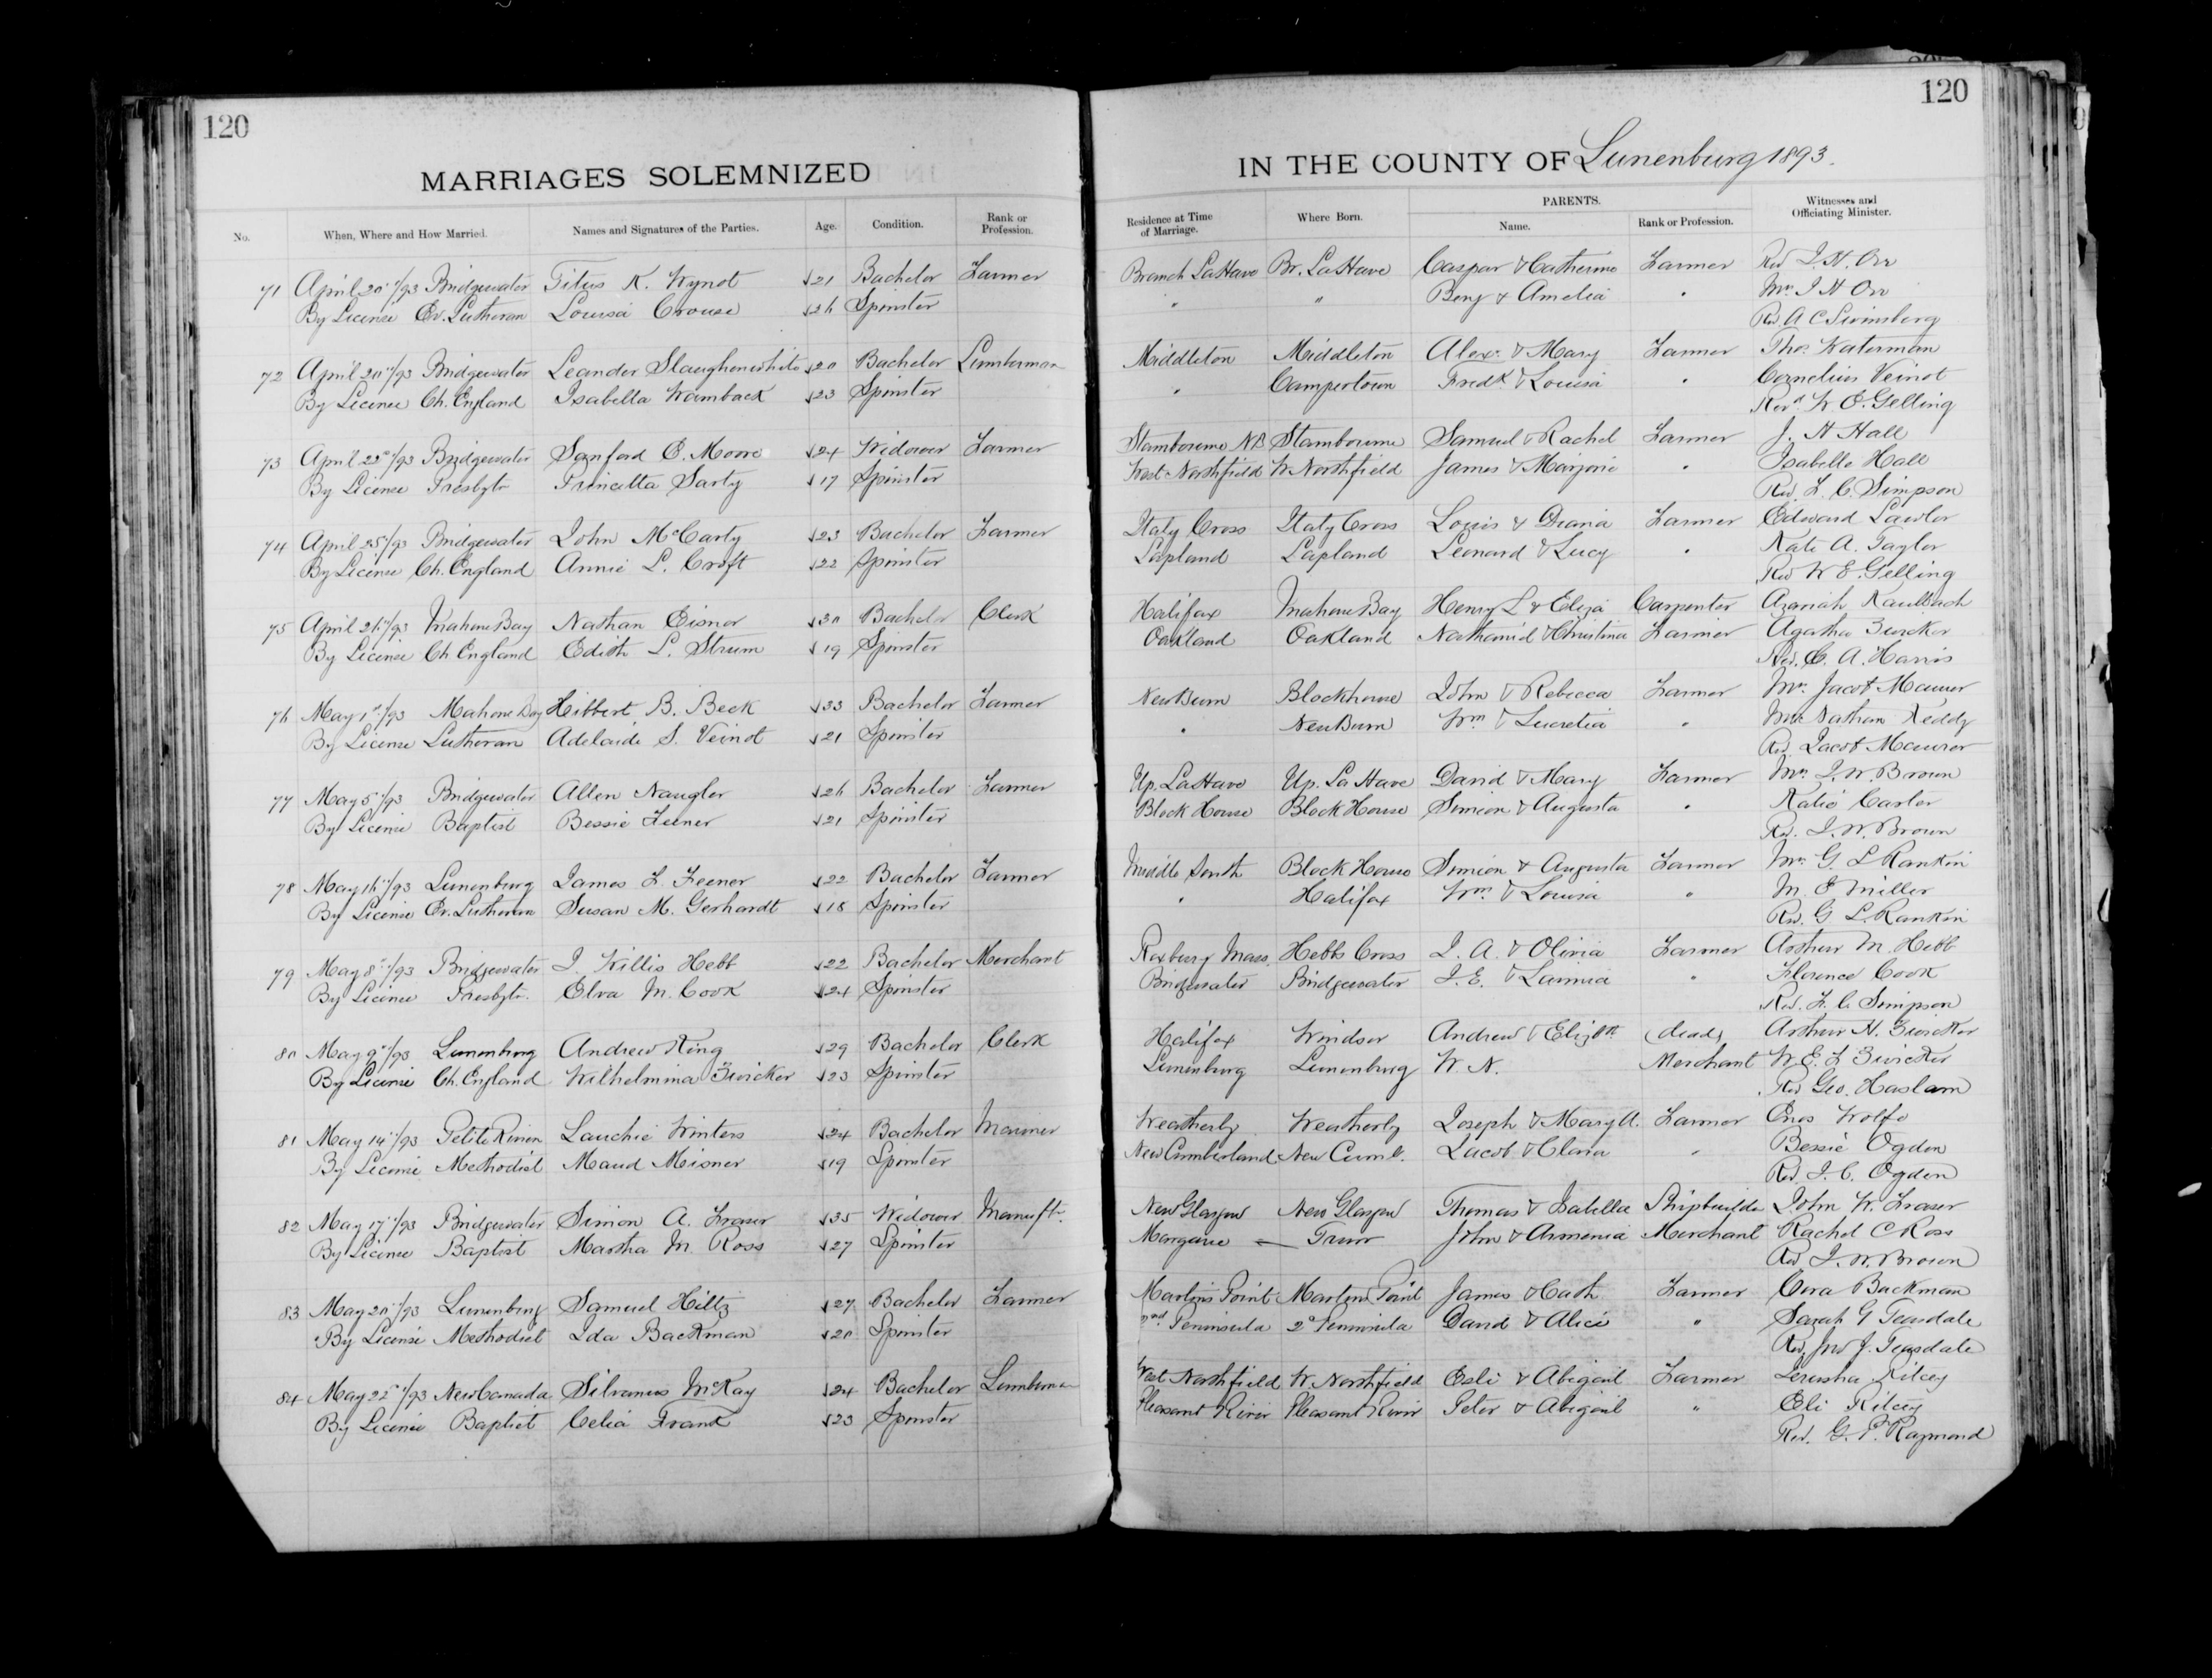 120
120
MARRIAGES SOLEMNIZED IN THE COUNTY OF Lunenburg 1893.
No. When, Where and How Married. Names and Signatures of the Parties. Age. Condition. Rank or Profession. Residence at Time of Marriage. Where Born. PARENTS. Name. Rank or Profession. Witnesses and Officiating Minister.
71 April 20"/93 Bridgewater Titus K. Wynot 21 Bachelor Farmer Branch LaHave Br. LaHave Caspar & Catherine Farmer Rev J. H. Orr
By License Ev. Lutheran Louisa Crouse 26 Spinster " " Benj & Amelia " Mrs J H Orr
Rev. A C Swinsberg
72 April 20"/93 Bridgewater Leander Slaughenwhite 20 Bachelor Lumberman Middleton Middleton Alexr & Mary Farmer Thos Waterman
By License Ch. England Isabella Wamback 23 Spinster " Campertown Fredk & Louisa " Cornelius Veinot
Revd W. E. Gelling
73 April 22"/93 Bridgewater Sanford E. Moore 24 Widower Farmer Stanbourne NB Stanbourne Samuel & Rachel Farmer J. H Hall
By License Presbytn Princetta Sarty 17 Spinster West Northfield W. Northfield James & Marjorie " Isabelle Hall
Rev. F. C. Simpson
74 April 25"/93 Bridgewater John McCarty 23 Bachelor Farmer Italy Cross Italy Cross Louis & Diana Farmer Edward Lawlor
By License Ch. England Annie L. Croft 22 Spinster Lapland Lapland Leonard & Lucy " Kate A. Taylor
Rev W E. Gelling
75 April 26"/93 Mahone Bay Nathan Eisnor 30 Bachelor Clerk Halifax Mahone Bay Henry L & Eliza Carpenter Azariah Kaulbach
By License Ch England Edith L. Strum 19 Spinster Oakland Oakland Nathaniel & Christina Farmer Agatha Zwicker
Rev. E. A. Harris
76 May 1st/93 Mahone Bay Hibbert B. Beck 33 Bachelor Farmer New Burn Blockhouse John & Rebecca Farmer Mrs Jacob Maurer
By License Lutheran Adelaide S. Veinot 21 Spinster " New Burn Wm & Lucretia " Mrs Nathan Keddy
Rev Jacob Maurer
77 May 5"/93 Bridgewater Allen Naugler 26 Bachelor Farmer Up. LaHave Up. LaHave David & Mary Farmer Mrs J. W. Brown
By License Baptist Bessie Feener 21 Spinster Block House Block House Simeon & Augusta " Katie Carter
Rev. J. W. Brown
78 May 16"/93 Lunenburg James F. Feener 22 Bachelor Farmer Middle South Block House Simeon & Augusta Farmer Mrs G L Rankin
By License Ev. Lutheran Susan M. Gerhardt 18 Spinster " Halifax Wm & Louisa " M. E Miller
Rev. G. L. Rankin
79 May 8"/93 Bridgewater J. Willis Hebb 22 Bachelor Merchant Roxbury Mass. Hebbs Cross J. A. & Olivia Farmer Arthur M. Hebb
By License Presbytn. Elva M. Cook 24 Spinster Bridgewater Bridgewater J. E. & Lavinia " Florence Cook
Rev. F. C Simpson
80 May 9"/93 Lunenburg Andrew King 29 Bachelor Clerk Halifax Windsor Andrew & Elizbth (dead) Arthur H. Zwicker
By License Ch. England Wilhelmina Zwicker 23 Spinster Lunenburg Lunenburg W. N. Merchant W. E. L Zwicker
Rev Geo. Haslam
81 May 14"/93 Petite Riviere Lauchie Winters 24 Bachelor Mariner Weatherly Weatherly Joseph & Mary A. Farmer Enos Wolfe
By License Methodist Maud Meisner 19 Spinster New Cumberland New Cumb. Jacob & Clara " Bessie Ogden
Rev. J. C. Ogden
82 May 17"/93 Bridgewater Simon A. Fraser 35 Widower Manuftr. New Glasgow New Glasgow Thomas & Isabella Shipbuilder John W. Fraser
By License Baptist Martha M. Ross 27 Spinster Margaree Truro John & Armenia Merchant Rachel C Ross
Rev J. W. Brown
83 May 20"/93 Lunenburg Samuel Hiltz 27 Bachelor Farmer Martins Point Martins Point James & Cath. Farmer Cora Backman
By License Methodist Ida Backman 20 Spinster 2nd Peninsula 2d Peninsula David & Alice " Sarah G Teasdale
Rev. Jno J. Teasdale
84 May 22"/93 New Canada Silvanus McKay 24 Bachelor Lumberman West Northfield W. Northfield Esli & Abigail Farmer Jerusha Kilcey
By License Baptist Celia Frank 23 Spinster Pleasant River Pleasant River Peter & Abigail " Eli Kilcey
Rev. G. P. Raymond